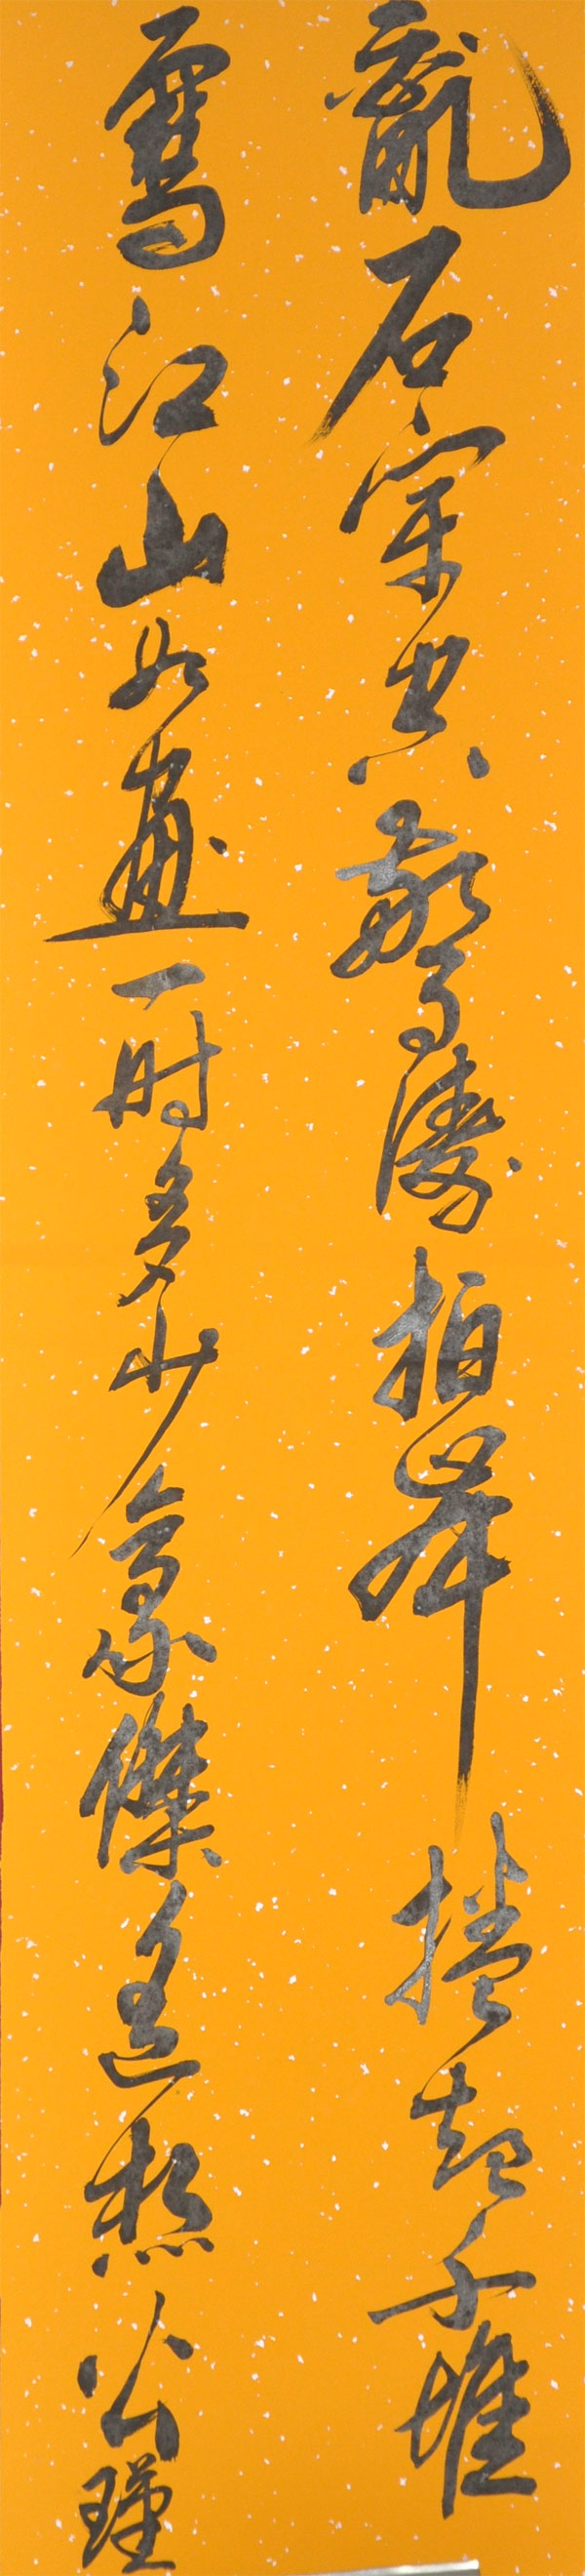 亂石穿空驚濤拍岸捲起千堆
雪江山如畫一时多少豪傑遙想公瑾